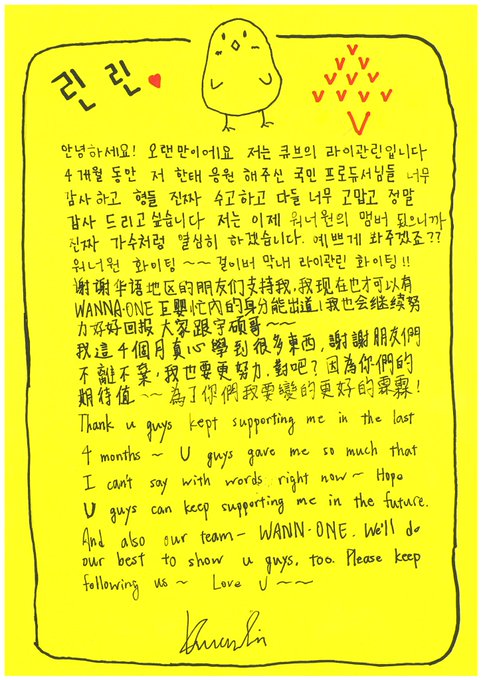 린린
안녕하세요! 오랜만이에요 저는 큐브의 라이관린입니다
4개월 동안 저 한태 응원 해주신 국민 프로듀서님들 너무
감사 하고 형들 진짜 수고하고 다들 너무 고맙고 정말
감사 드리고 싶습니다 저는 이제 워너원의 맴버 됬으니까
진짜 가수처럼 열심히 하겠습니다. 예쁘게 봐주겠죠??
워너원 화이팅 ~~ 걸이버 막내 라이관린 화이팅!!
谢谢华语地区的朋友们支持我,我现在也才可以有
WANNA·ONE 巨婴忙内的身分能出道!我也会继续努
力好好回报大家跟宇硕哥~~
我這4個月真心學到很多東西,謝謝朋友們
不離不棄,我也要更努力,對吧?因為你們的
期待值~~為了你們我要變的更好的霖霖!
Thank u guys kept supporting me in the last
4 months ~ U guys gave me so much that
I can't say with words right now ~ Hope
U guys can keep supporting me in the future.
And also our team - WANN-ONE. We'll do
our best to show u guys, too. Please keep
following us ~ Love U ~~